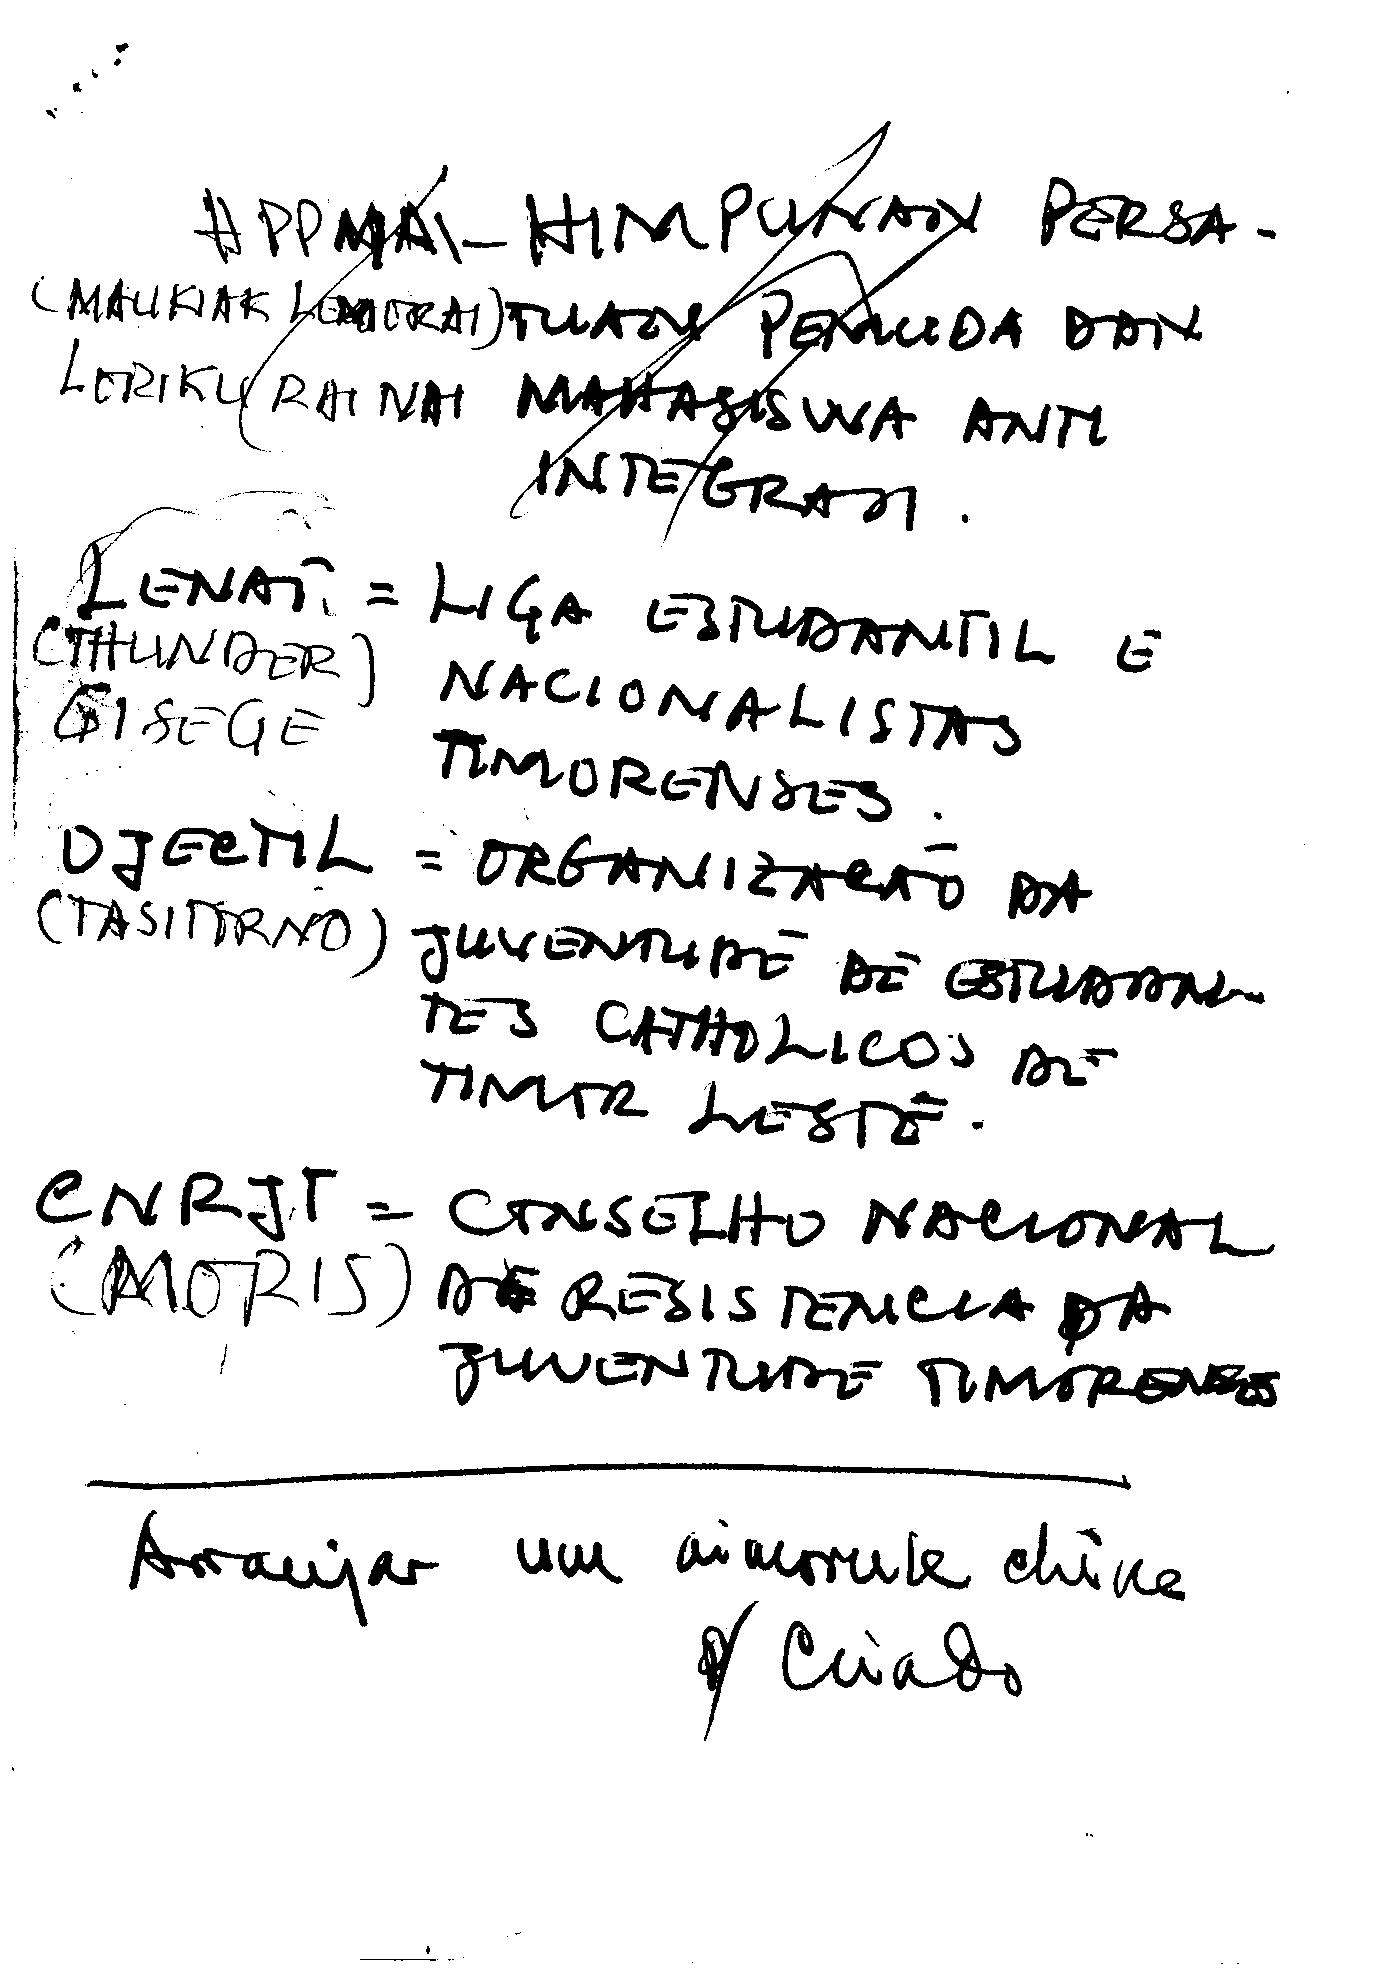 HPPMAI – HIMPUNAN PERSA-
(MAUKIAK LEMORAI) TUAN PEMUDA DAN
LORIKU RAI NAI MAHASISWA ANTI
INTEGRASI.
LENAT. = LIGA ESTUDANTIL E
(THUNDER) NACIONALISTAS
GISEGE TIMORENSES.
OJECTIL = ORGANIZAÇÃO DA
(TASITORNO) JUVENTUDE DE ESTUDAN-
TES CATHOLICOS DE
TIMOR LESTE.
CNRJT = CONSELHO NACIONAL
(MORIS) DE RESISTENCIA DA
JUVENTUDE TIMORENSES
Arranjar um chine
p/ Criado